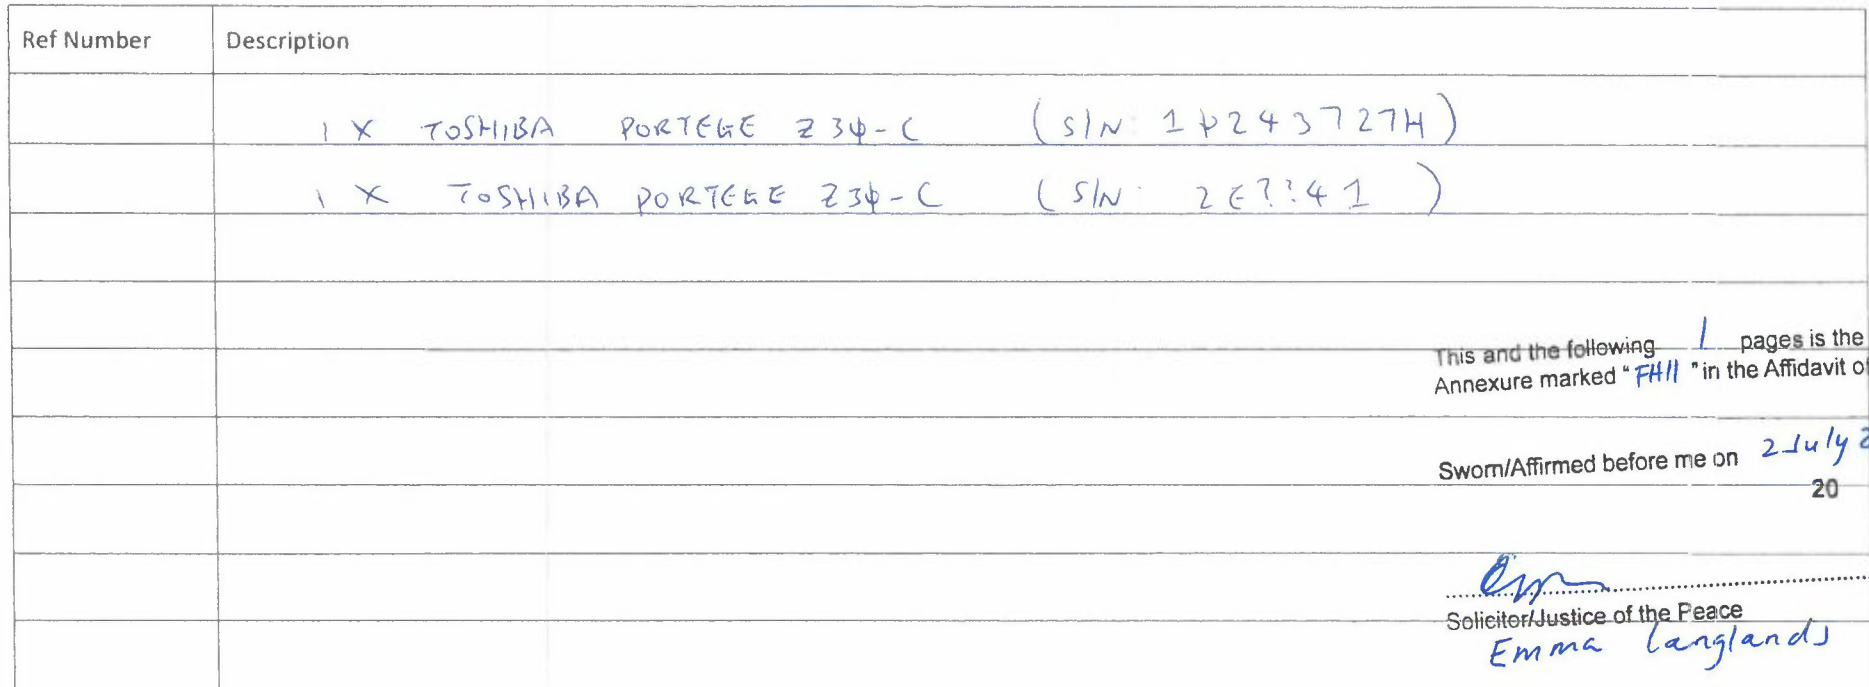 Ref Number Description
1 X TOSHIBA PORTEGE Z30-C (S/N: 1P243727H)
1 X TOSHIBA PORTEGE Z30-C (S/N: 2E??41 )
This and the following 1 pages is the
Annexure marked "FH11" in the Affidavit of
Sworn/Affirmed before me on 2 July 2
20
Solicitor/Justice of the Peace
Emma Langlands